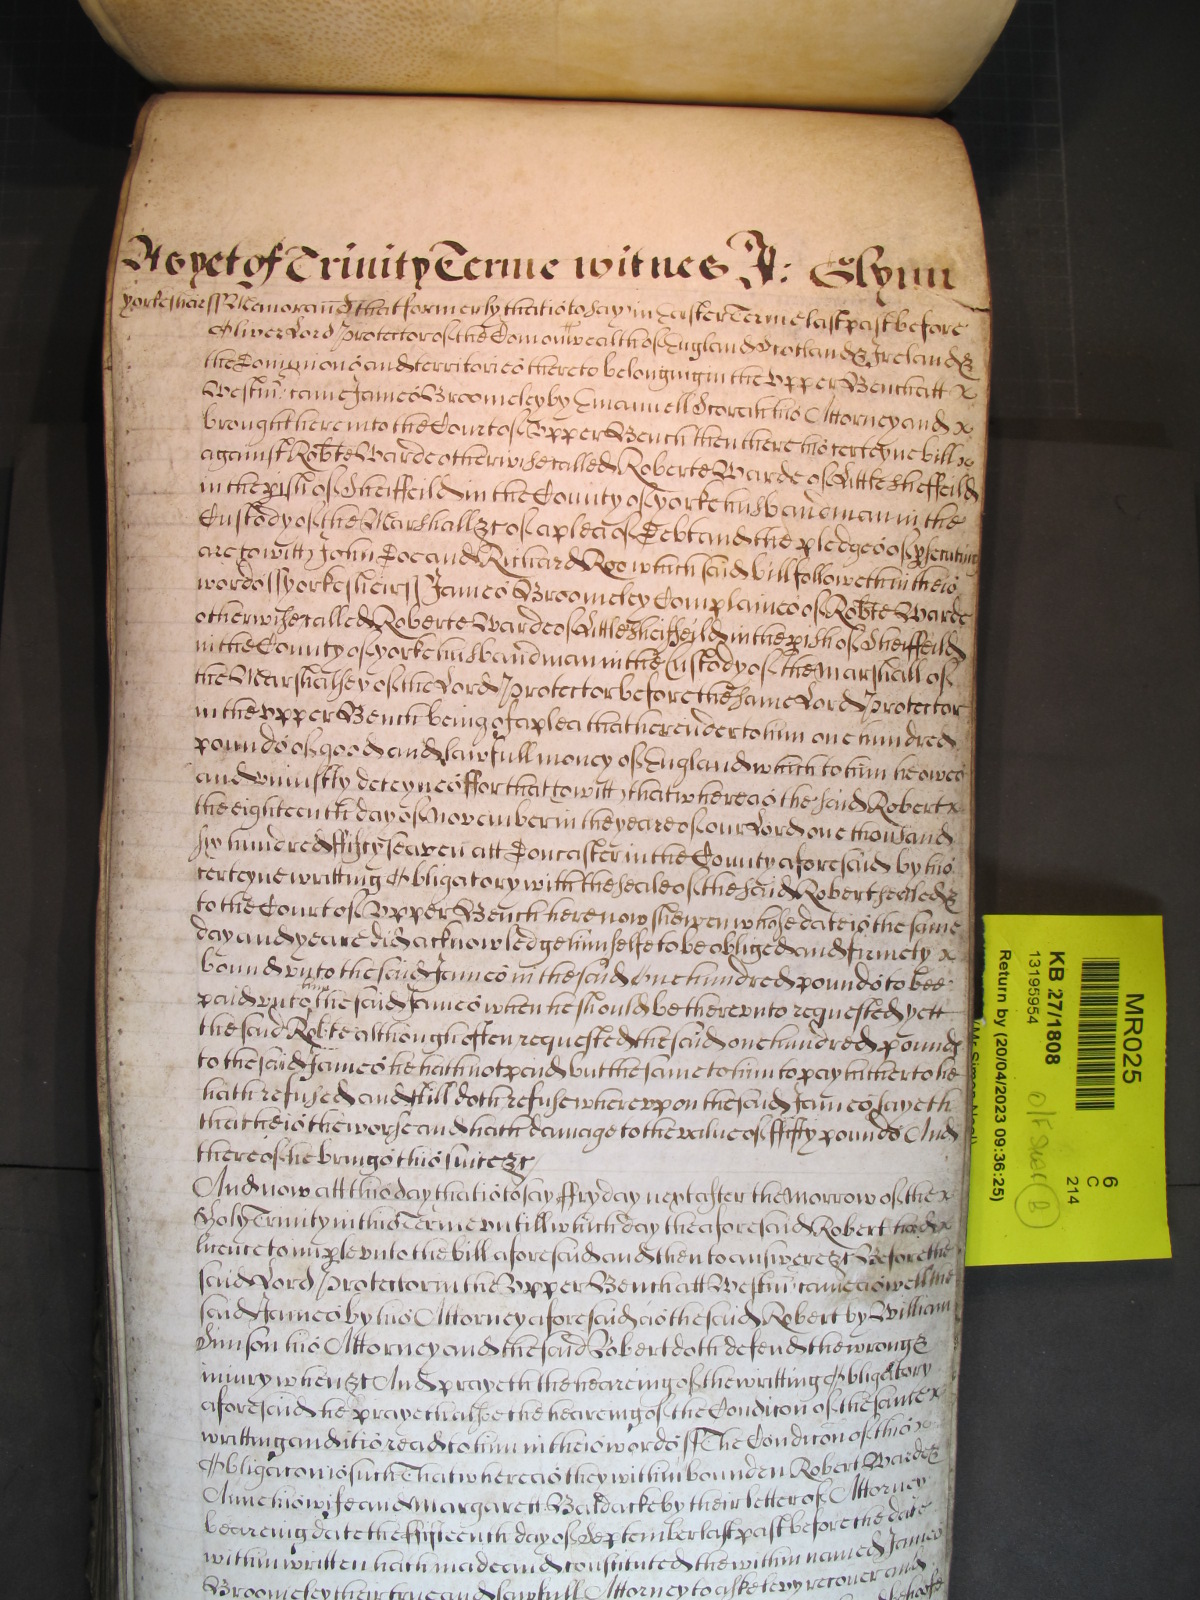 As yet of Trinity Terme witnes J: Glynn
Yorkesheir ss Memorand that formerly that is to say in Easter Terme last past before
Oliver Lord Protector of the Comonwealth of England Scotland & Ireland &
the Dominions and territories thereto belonging in the Upper Bench att x
Westm: came James Broomeley by Emanuell his Attorney and x
brought here into the Court of Upper Bench then there his certeyne bill x
against Robte Warde otherwise called Roberte Warde of Little Sheffeild
in the pish of Sheiffeild in the County of Yorke husbandman in the
Custody of the Marshall &c of a plea of Debt and the pledges of psecuting
are to witt John Doe and Richard Roo which said bill followeth in theis
words ss Yorkesheir ss James Broomeley Complaines of Robte Warde
otherwise called Roberte Warde of Little Sheiffeild in the pish of Sheiffeild
in the County of Yorke husbandman in the Custody of the Marshall of
the Marshalsey of the Lord Protector before the same Lord Protector
in the Upper Bench being of a plea that he render to him one hundred
pounds of good and lawfull money of England which to him he owes
and uniustly deteynes ffor that to witt that whereas the said Robert x
the eighteenth day of November in the yeare of our Lord one thousand
six hundred ffifty seaven att Doncaster in the County aforesaid by his
certeyne writting Obligatory with the seale of the said Robert sealed &
to the Court of Upper Bench here now shewen whose date is the same
day and yeare did acknowledge himselfe to be obliged and firmely x
bound unto the said James in the said one hundred pounds to bee
paid unto the said James when he should be thereunto requested yett
the said Robte although often requested the said one hundred pounds
to the said James he hath not paid but the same to him to pay hitherto he
hath refused and still doth refuse whereuppon the said James sayeth
that he is the worse and hath damage to the value of ffifty pounds And
thereof he brings this suite &c
And now att this day that is to say ffryday next after the Morrow of the x
Holy Trinity in this Terme untill which day the aforesaid Robert had x
licence to imple unto the bill aforesaid and then to answere &c Before the
said Lord Protector in the Upper Bench att Westm: came aswell the
said James by his Attorney aforesaid as the said Robert by William
Simson his Attorney and the said Robert doth defend the wrong &
iniury when &c And prayeth the heareing of the writting Obligatory
aforesaid he prayeth alsoe the heareing of the Condicon of the same x
writting and it is read to him in theis words ss The Condicon of this x
Obligacon is such That whereas they within bounden Robert Warde &
Anne his wife and Margarett by their letter of Attorney
beareing date the ffifteenth day of September last past before the date
within written hath made and constituted the within named James
Broomeley their true and lawfull Attorney to aske levy recover and
MR025
6
C
214
KB 27/1808
13195954
Return by (20/04/2023 09:36:25)